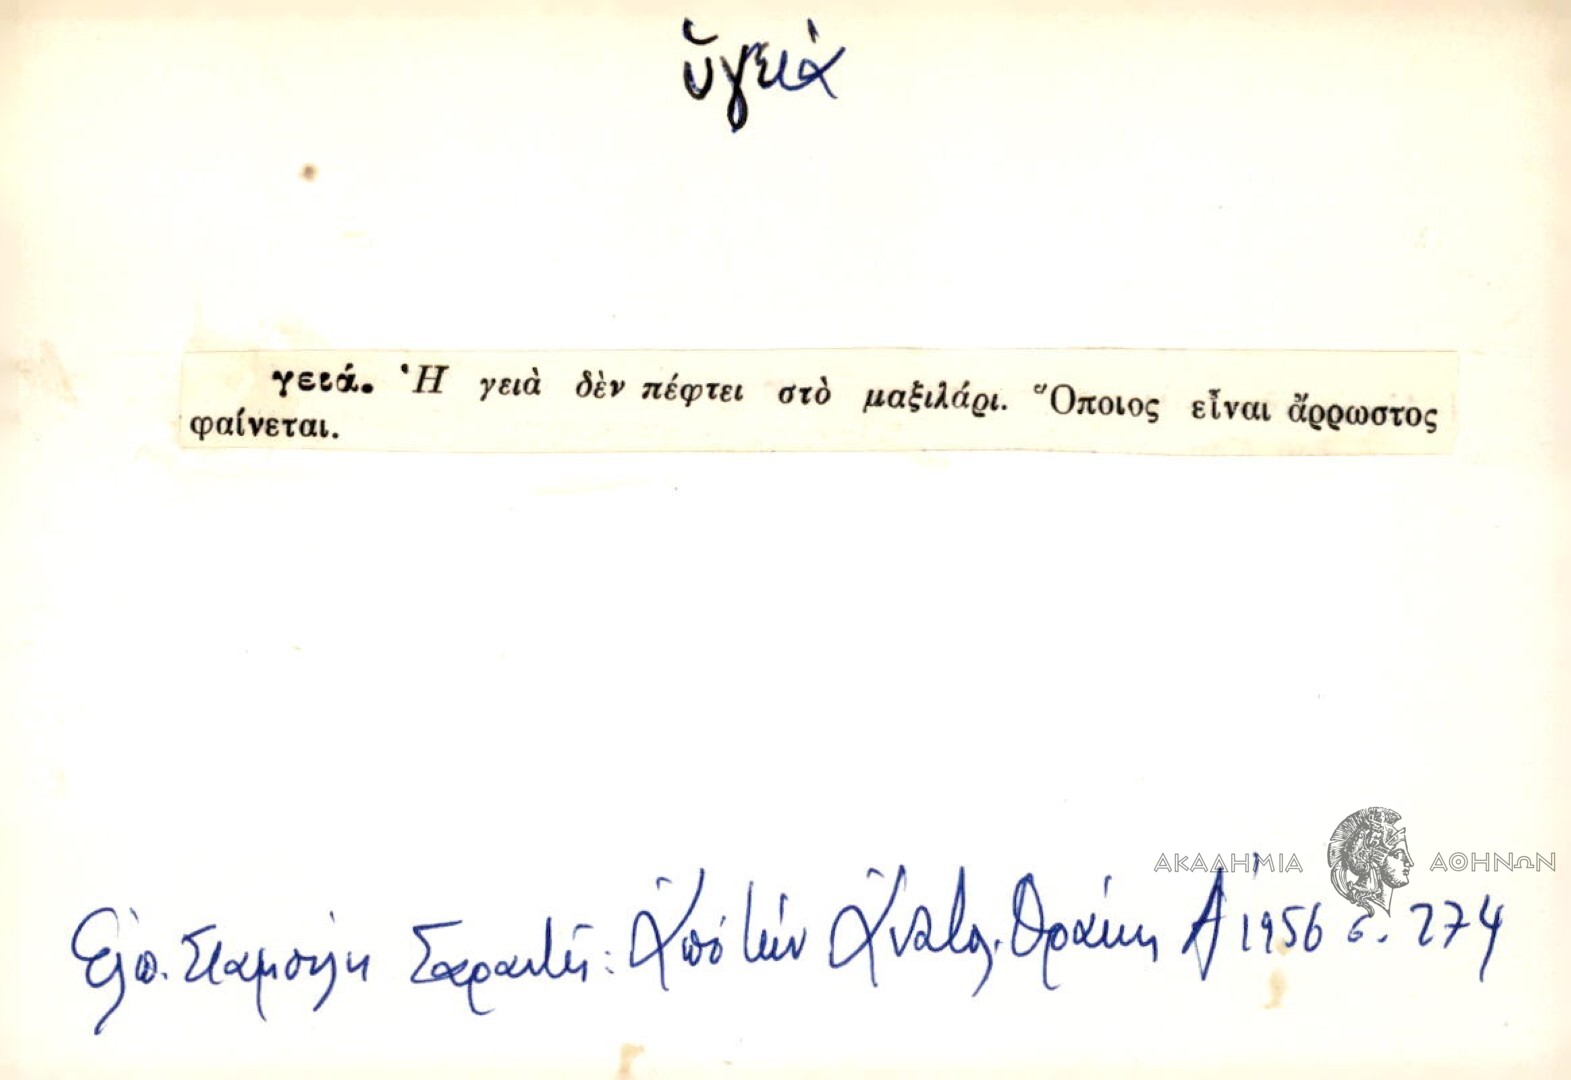 ὑγειὰ
γειά. Ἡ γειὰ δὲν πέφτει στὸ μαξιλάρι. Ὅποιος εἶναι ἄρρωστος
φαίνεται.
ΑΚΑΔΗΜΙΑ ΑΘΗΝΩΝ
Ἐλπ. Σταμούλη Σαραντῆ: Ἀπὸ τὴν Ἀνατολ. Θράκη Α' 1956 σ. 274